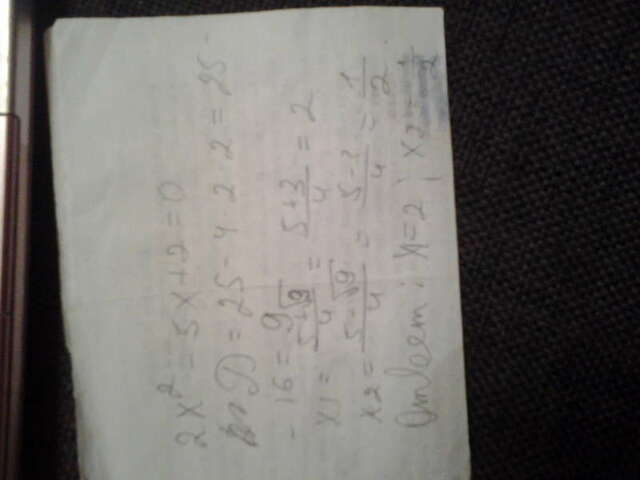 2x² - 5x + 2 = 0
D = 25 - 4 · 2 · 2 = 25 -
- 16 = 9
x1 = (5 + √9)/4 = (5 + 3)/4 = 2
x2 = (5 - √9)/4 = (5 - 3)/4 = 1/2
Ответ: x = 2; x2 = 1/2